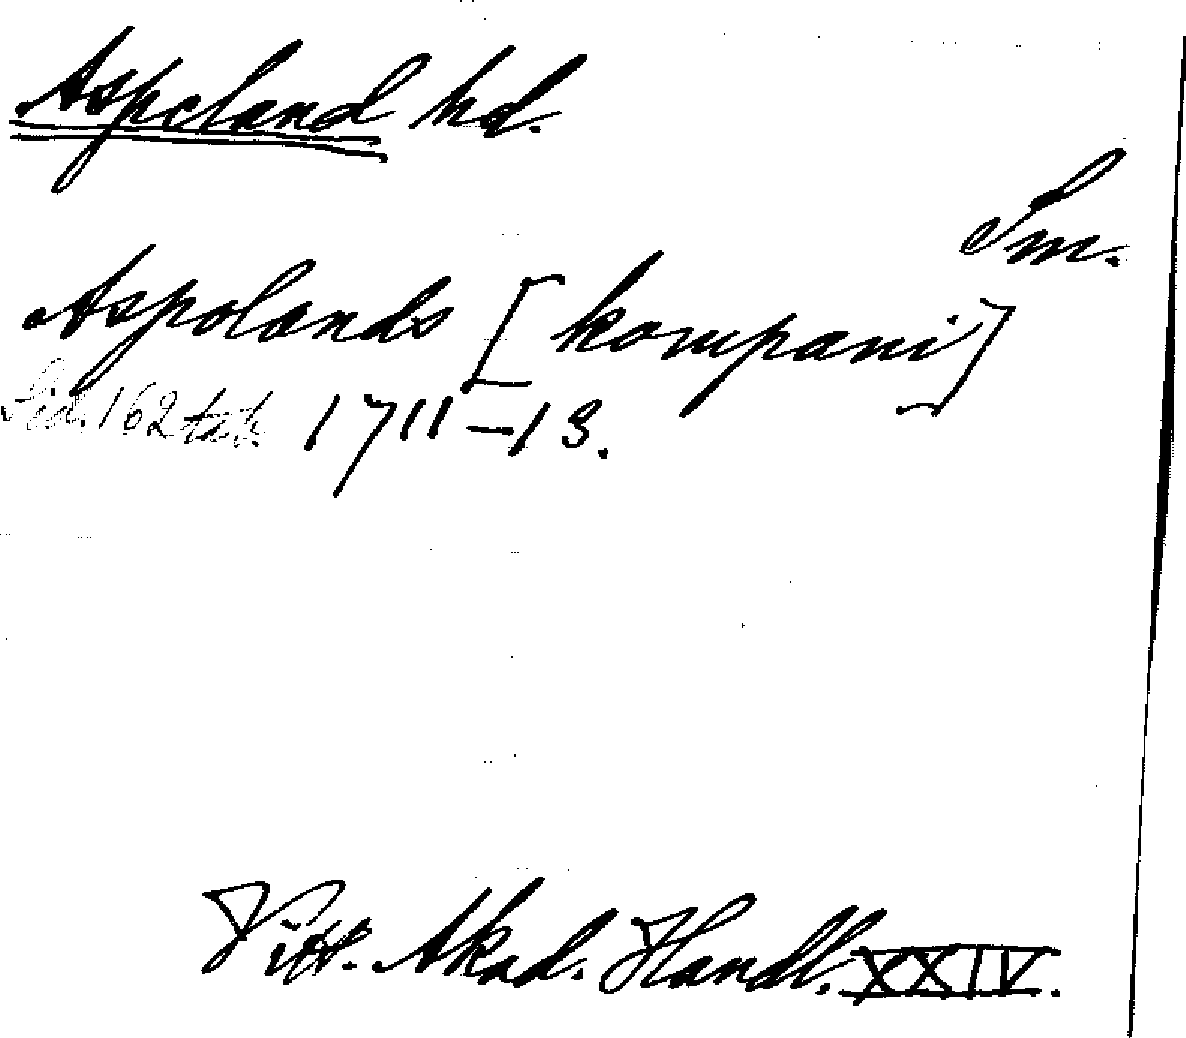 Aspeland hd.
Sm.
Aspolands [kompani]
Sid. 162 tab. 1711–13.
Vitt. Akad. Handl. XXIV.